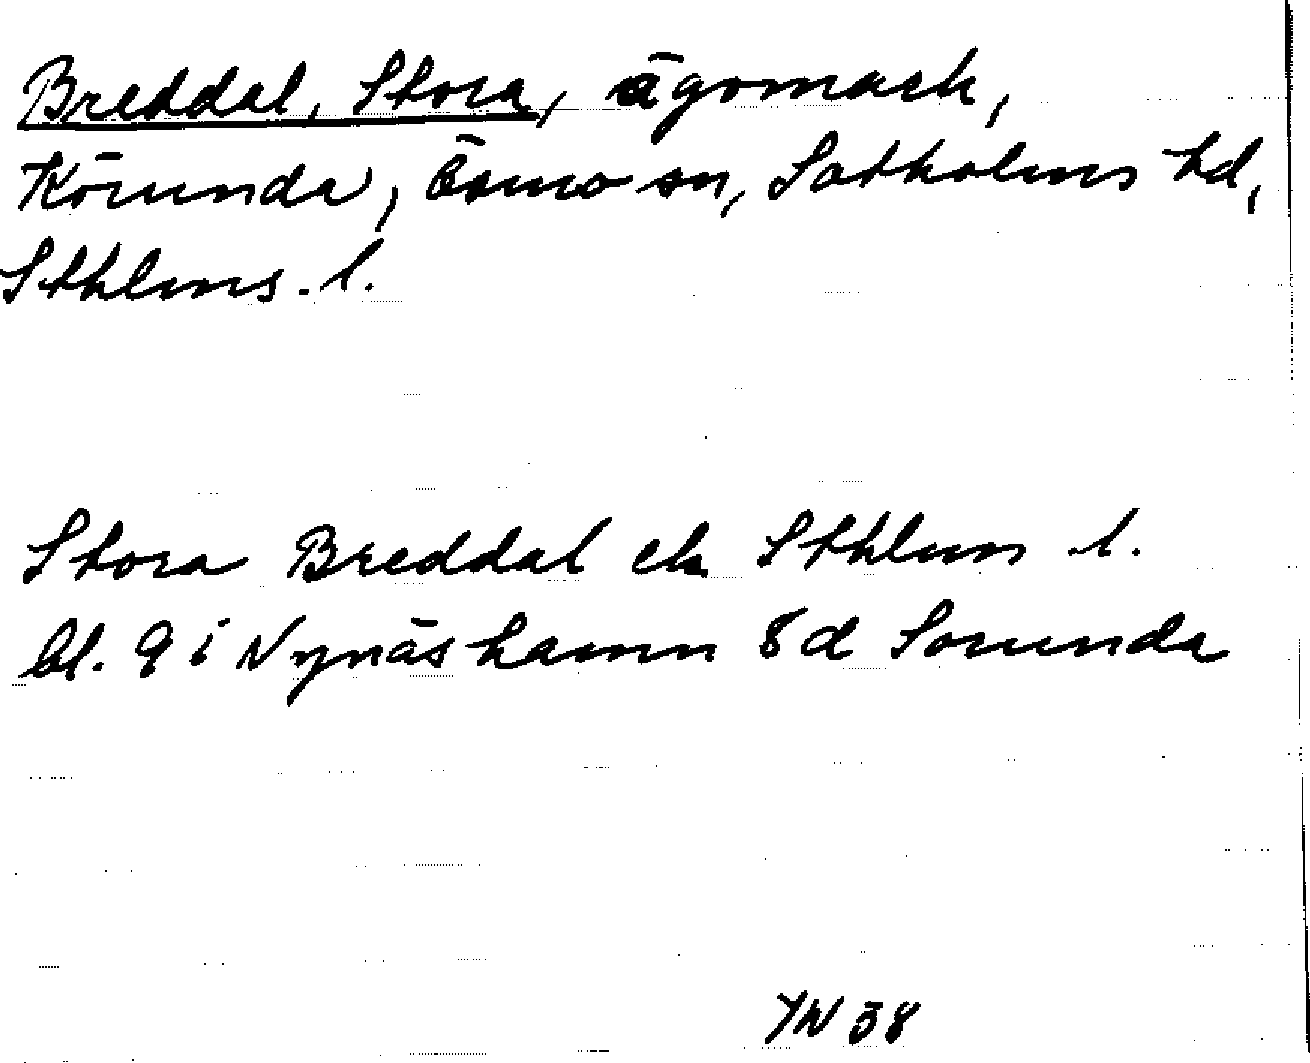 Breddal, Stora, ägomark,
Körunda, Ösmo sn, Sotholms hd,
Sthlms. l.
Stora Breddal ek Sthlms l.
bl. 9 i Nynäshamn 8d Sorunda
YW 58